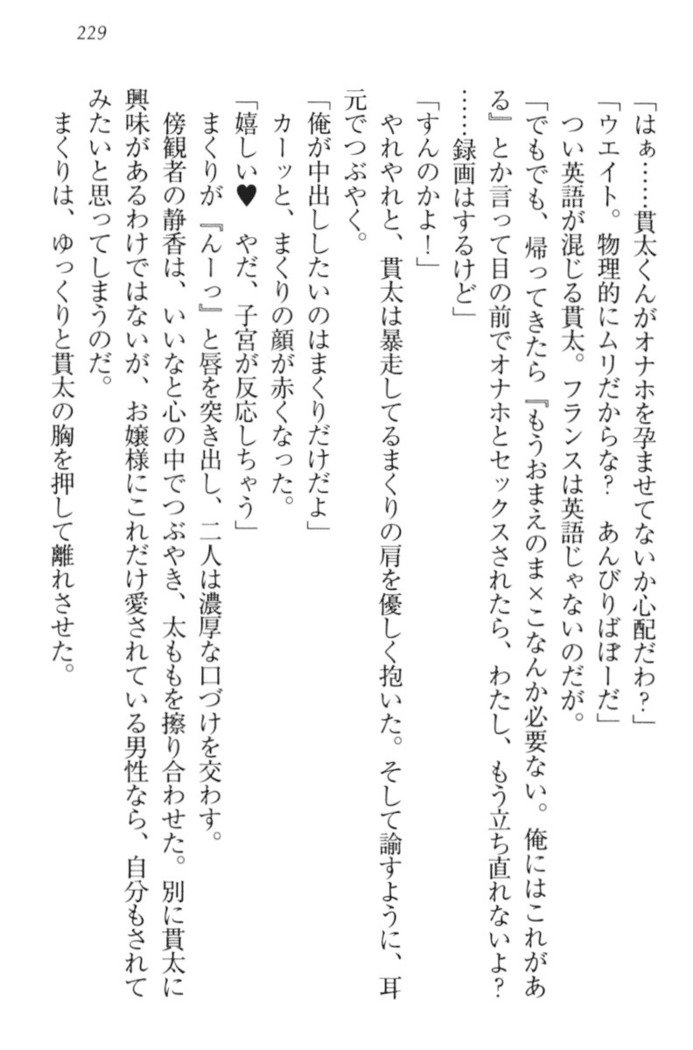 229
「はぁ……貫太くんがオナホを孕ませてないか心配だわ？」
「ウエイト。物理的にムリだからな？　あんびりばぼーだ」
　つい英語が混じる貫太。フランスは英語じゃないのだが。
「でもでも、帰ってきたら『もうおまえのま×こなんか必要ない。俺にはこれがあ
る』とか言って目の前でオナホとセックスされたら、わたし、もう立ち直れないよ？
……録画はするけど」
「すんのかよ！」
　やれやれと、貫太は暴走してるまくりの肩を優しく抱いた。そして諭すように、耳
元でつぶやく。
「俺が中出ししたいのはまくりだけだよ」
　カーッと、まくりの顔が赤くなった。
「嬉しい♥　やだ、子宮が反応しちゃう」
　まくりが『んーっ』と唇を突き出し、二人は濃厚な口づけを交わす。
　傍観者の静香は、いいなと心の中でつぶやき、太ももを擦り合わせた。別に貫太に
興味があるわけではないが、お嬢様にこれだけ愛されている男性なら、自分もされて
みたいと思ってしまうのだ。
　まくりは、ゆっくりと貫太の胸を押して離れさせた。